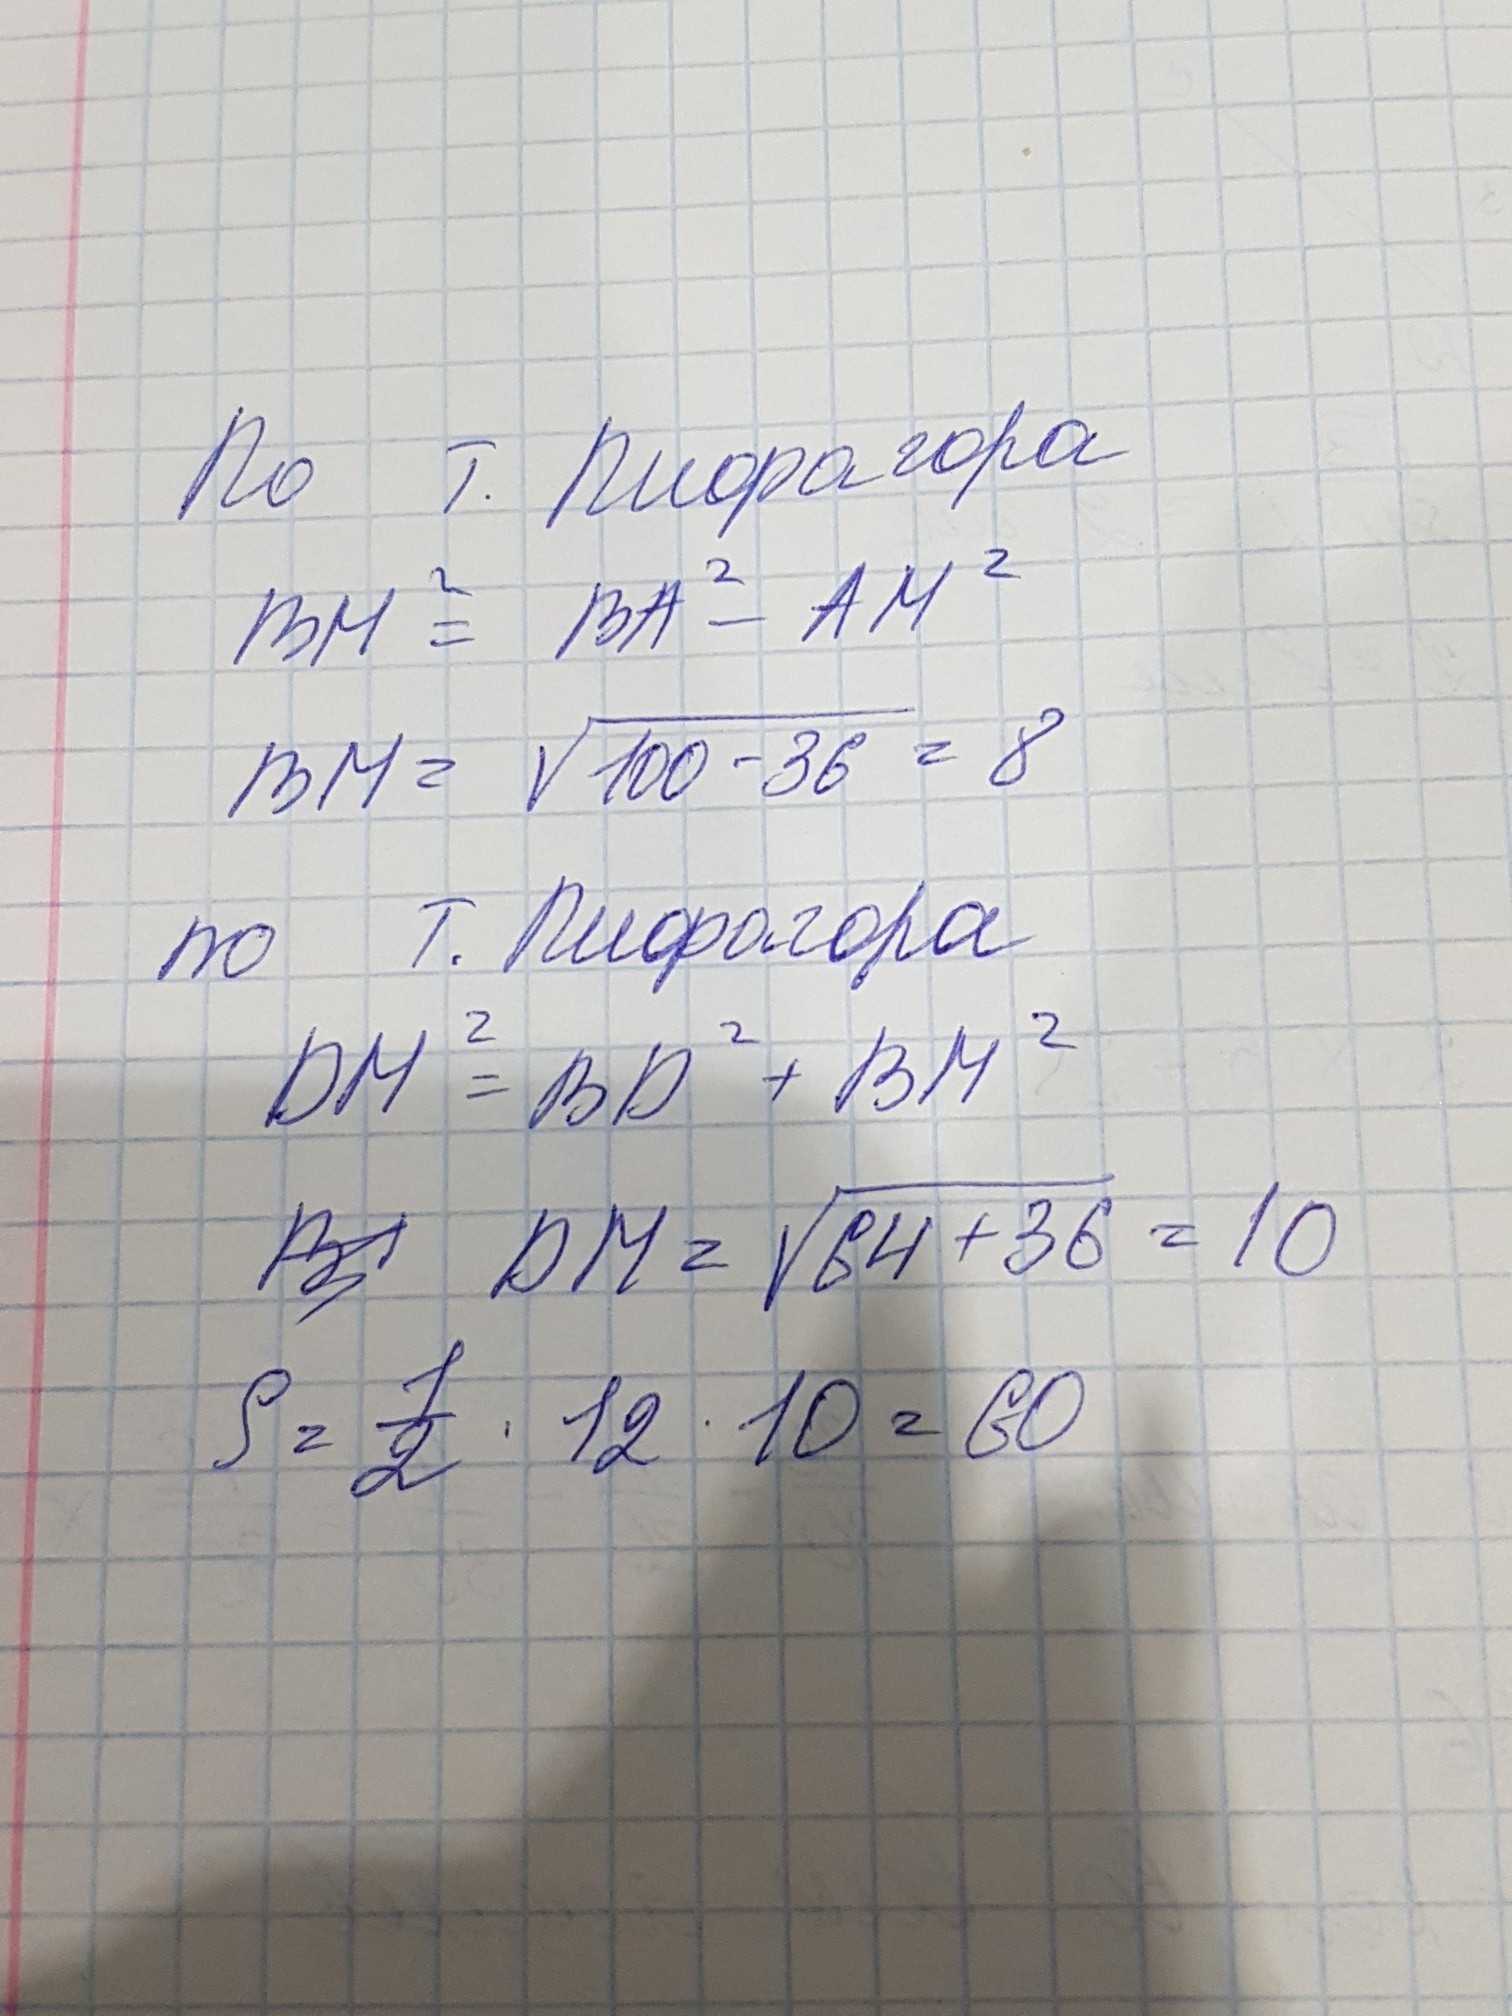 По т. Пифагора
BM² = BA² - AM²
BM = √100-36 = 8
по т. Пифагора
DM² = BD² + BM²
DM = √64+36 = 10
S = 1/2 · 12 · 10 = 60